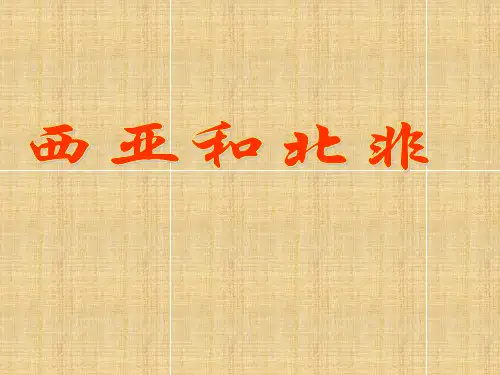 西亚和北非